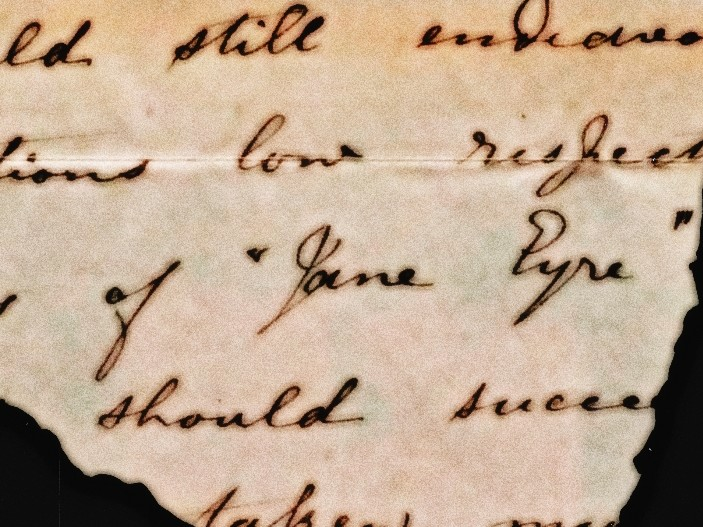 ld still endeavo
tions low respect
y of "Jane Eyre"
should succee
taken